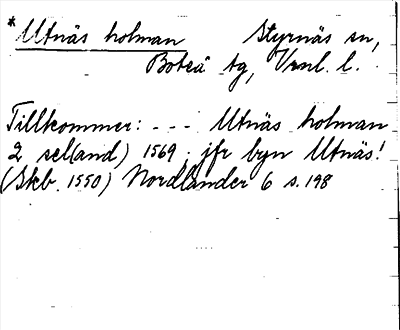 *Utnäs holman Styrnäs sn,
Boteå tg, Vnl. l.
Tillkommer: - - - Utnäs holman
2 sel(and) 1569. jfr byn Utnäs!
(Skb. 1550) Nordlander 6 s. 198